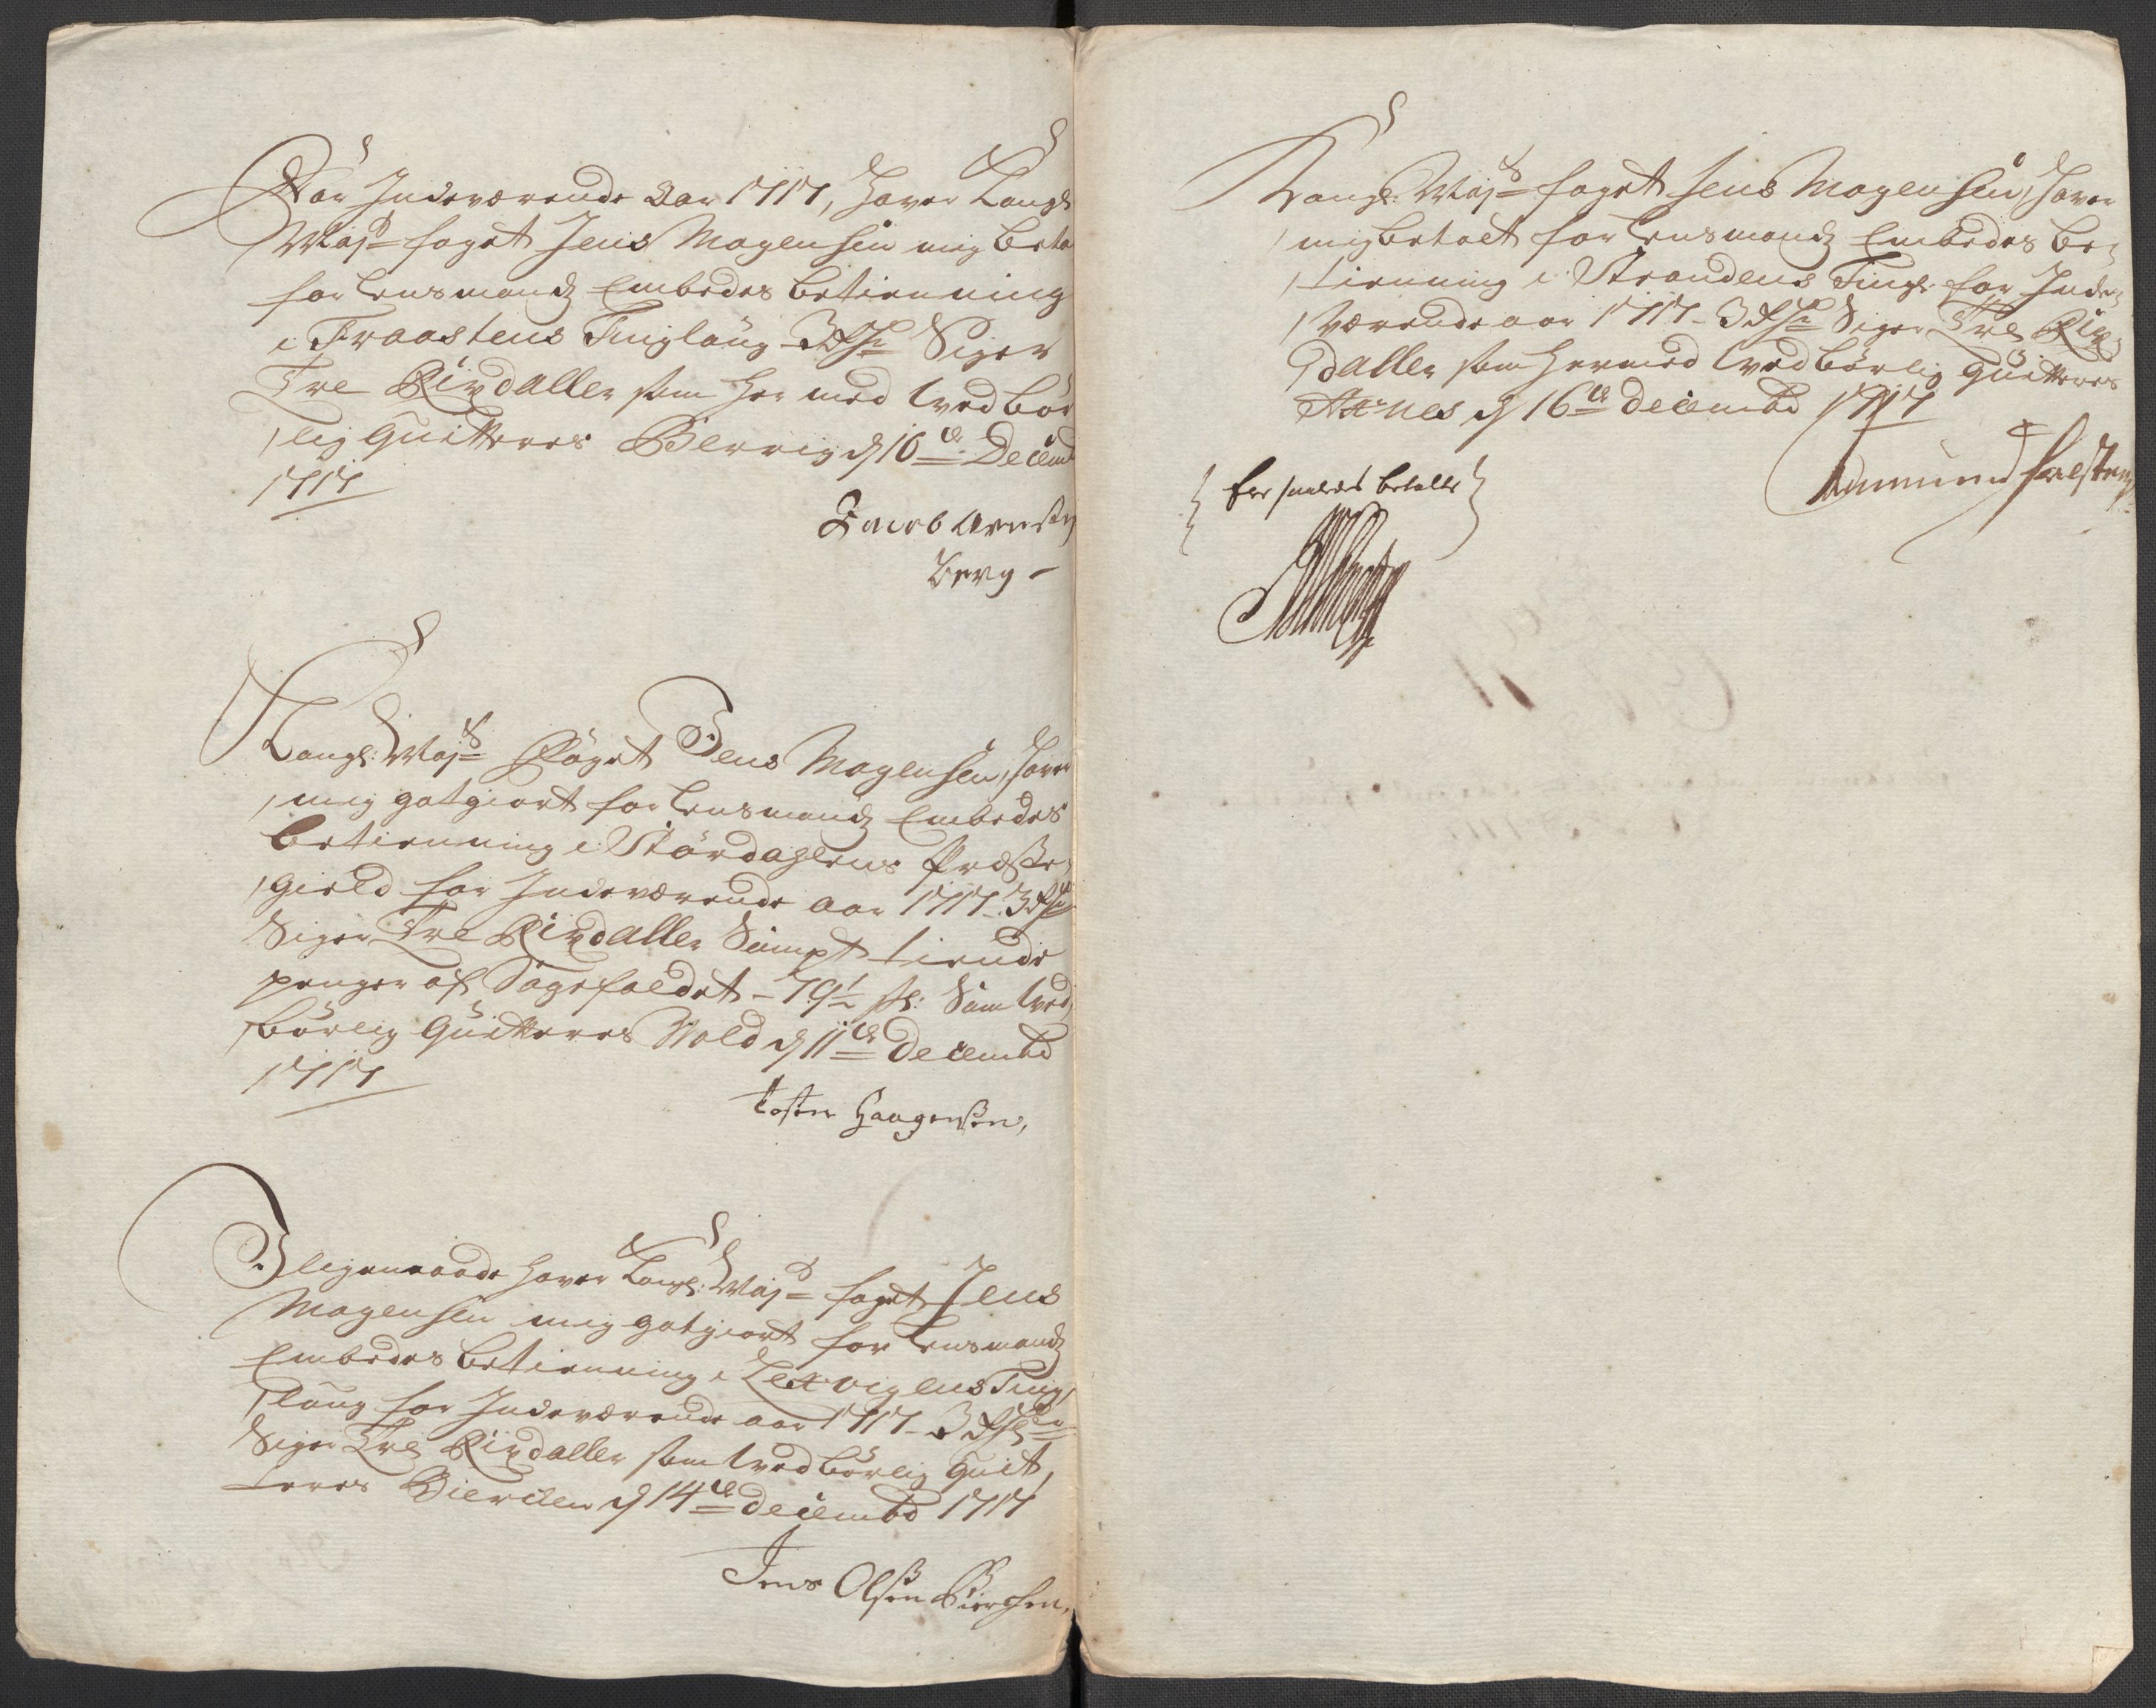 For Indeværende Aar 1717, haver Kongl:
Maj:ts foget Jens Mogensen mig beta
for Lensmandz Embedes betienning
i Fraastens Tinglaug 3 Rdr Siger
Tre Rixdaller som her med ved bør
lig quitteres Berrig d 16de Decemb
1717
Jacob Arents
Berg -
Kongl: Maj:ts foget Jens Mogensen, haver
mig gotgiort for Lensmandz Embedes
betienning i Størdahlens Præste
gield for Indeværende aar 1717 3 Rdr
Siger Tre Rixdaller Sampt tiende
penger af Sagefaldet - 79½ s: Som ved
børlig quitteres Wold d 11de Decembr
1717
Tosten Haagensen,
I ligemaade haver Kongl: Maj:ts foget Jens
Mogensen mig gotgiort for Lensmandz
Embedes betienning i Lexvigens Ting
laug for Indeværende aar 1717 - 3 Rdr
Siger Tre Rixdaller som ved børlig quit
teres Bierchen d 14de Decembr 1717
Jens Olsen Bierchen,
Kongl: Maj:ts foget Jens Mogensen, haver
mig betalt for Lensmandz Embedes be
tienning i Strandens Tingl: for Inde
værende aar 1717 - 3 Rdr Siger Tre Rix
daller som hermed ved børlig quitteres
Axnes d 16de Decembr 1717
Amund
Er saaledes betalt